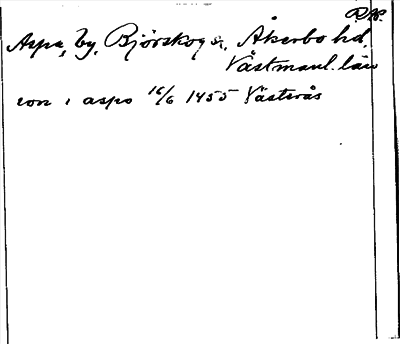 RAP.
Aspa, by, Björskogs s., Åkerbo hd,
Västmanl. län
con i aspo 16/6 1455 Västerås